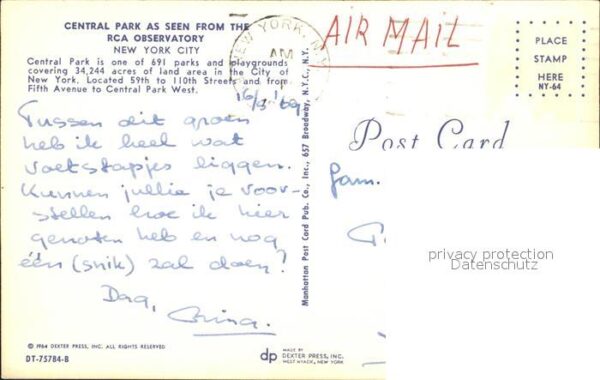 CENTRAL PARK AS SEEN FROM THE
RCA OBSERVATORY
NEW YORK CITY
Central Park is one of 691 parks and playgrounds
covering 34,244 acres of land area in the City of
New York. Located 59th to 110th Streets and from
Fifth Avenue to Central Park West.
NEW YORK, N.Y.
AM
AIR MAIL
PLACE
STAMP
HERE
NY-64
16/3 '69
Tussen dit groen
heb ik heel wat
voetstapjes liggen.
Kunnen jullie je voor-
stellen hoe ik hier
genoten heb en nog
één (snik) zal doen?
Dag,
Manhattan Post Card Pub. Co., Inc., 657 Broadway, N.Y.C., N.Y.
Post Card
Fam.
privacy protection
Datenschutz
© 1964 DEXTER PRESS, INC. ALL RIGHTS RESERVED
DT-75784-B
dp
MADE BY
DEXTER PRESS, INC.
WEST NYACK, NEW YORK